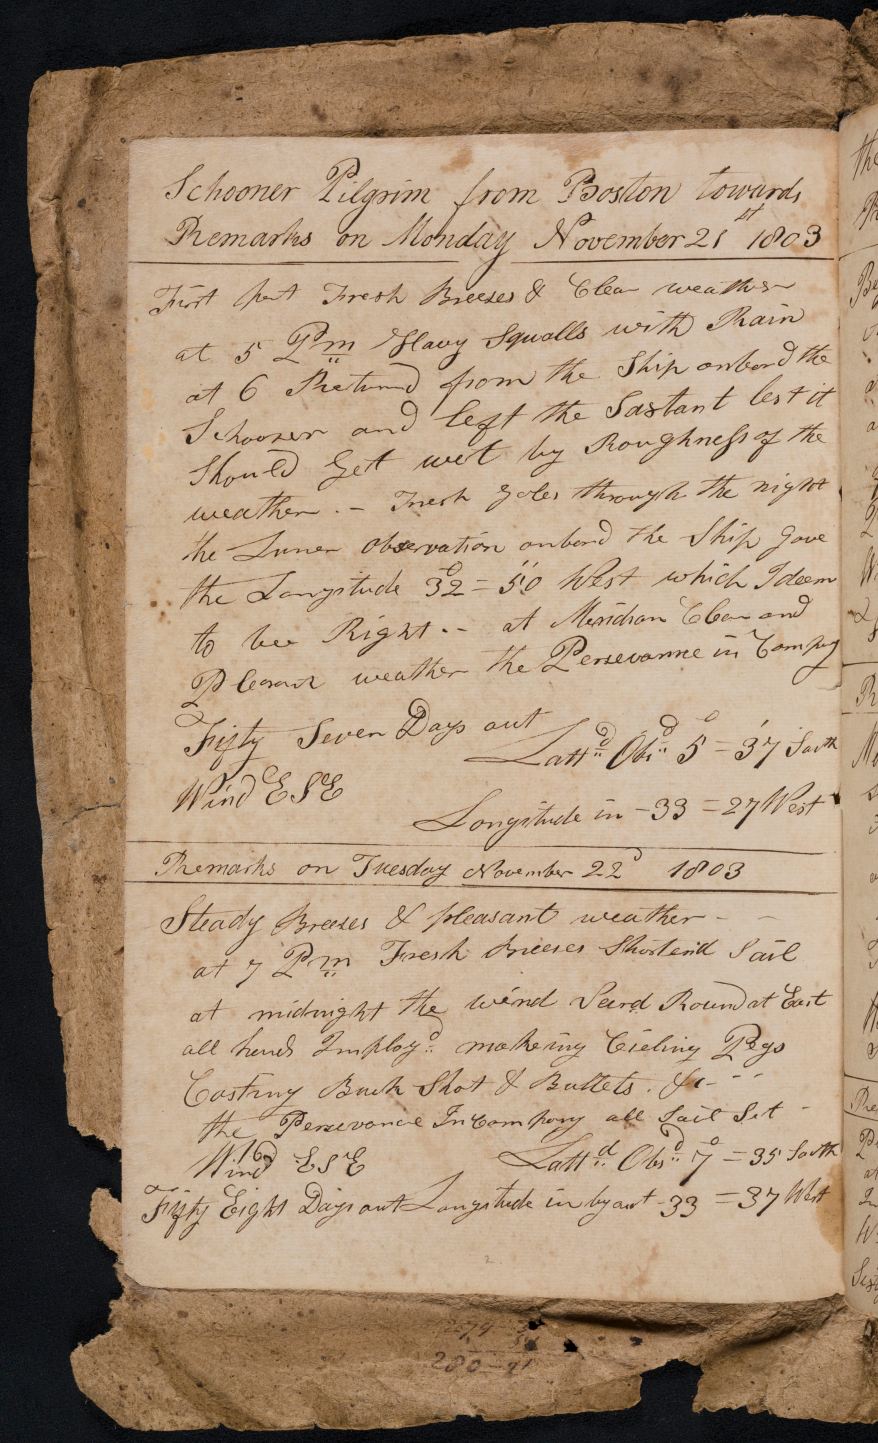 Schooner Pilgrim from Boston towards
Remarks on Monday November 21st 1803
First part Fresh Breezes & Clear weather
at 5 Pm Heavy Squalls with Rain
at 6 Returnd from the Ship onbord the
Schooner and left the Saxtant lest it
Should Get wet by Roughness of the
weather .- Fresh Gales through the night
the Luner Observation onbord the Ship Gave
the Longitude 32°=50" West which I deem
to bee Right .- at Meridian Clear and
Pleasant weather the Persevarance in Compay
Fifty Seven Days out
Lattd Obsd 5°=37' South
Wind ESE
Longitude in -33=27 West
Remarks on Tuesday November 22d 1803
Steady Breezes & pleasant weather - -
at 7 Pm Fresh Breezes Shortend Sail
at midnight the wind Round at East
all hands Imployd making Cieling Pegs
Casting Buck Shot & Bullets. &c- - -
the Persevarance In Company all Sail Set -
Wind ESE
Lattd Obsd 7°=35 South
Fifty Eight Days out Longitude in by act -33=37 West
280-91